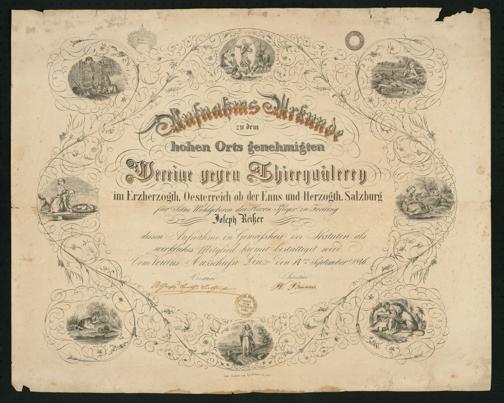 Aufnahms Urkunde
zu dem
hohen Orts genehmigten
Vereine gegen Thierquälerey
im Erzherzogth. Oesterreich ob der Enns und Herzogth. Salzburg
für Seine Wohlgeboren den Herrn Pfleger in
Joseph Reißer
dessen Aufnahme in Gemäßheit der Statuten als
wirkliches Mitglied hiemit bestättiget wird
Vom Vereins Ausschuße Linz den September 1846